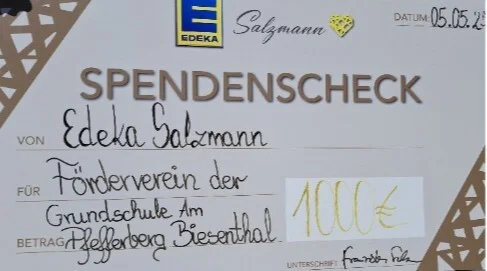 EDEKA
Salzmann
DATUM: 05.05.2
SPENDENSCHECK
VON Edeka Salzmann
FÜR Förderverein der
Grundschule Am
1000€
BETRAG Pfefferberg Biesenthal
UNTERSCHRIFT